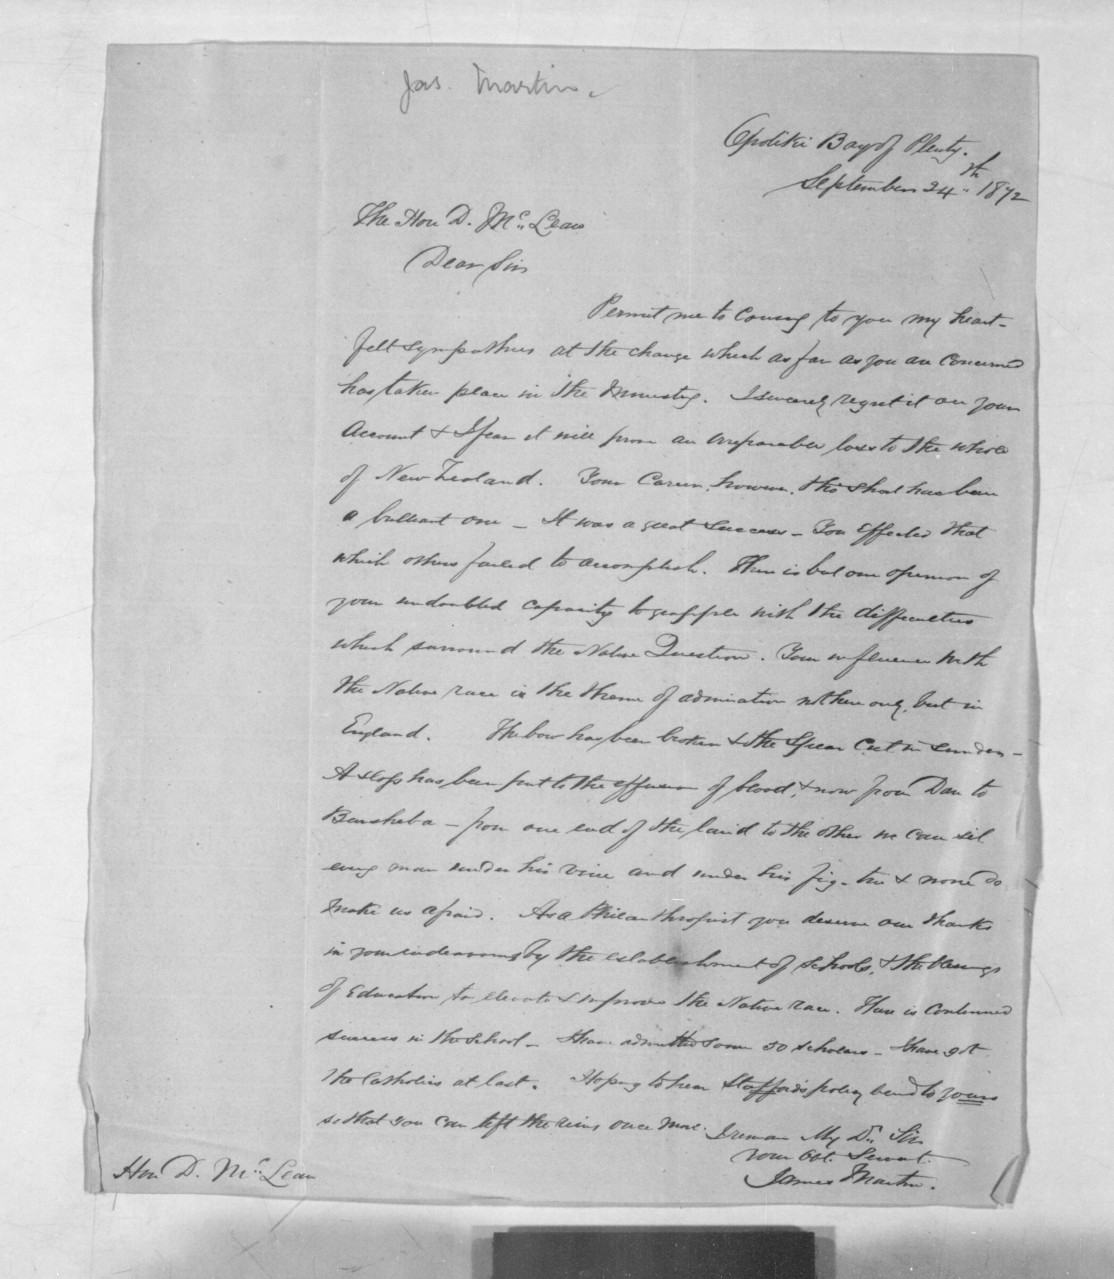 Jas. Martin.
Opotiki Bay of Plenty.
September 24th 1872
The Hon D. McLean
Dear Sir
Permit me to convey to you my heart-
felt sympathies at the change which as far as you are concerned
has taken place in the Ministry. I sincerely regret it on your
account & I fear it will prove an irreparable loss to the whole
of New Zealand. Your Career, however, tho' short has been
a brilliant one - It was a great success - You effected that
which others failed to accomplish. There is but one opinion of
your undoubted capacity to grapple with the difficulties
which surround the Native Question. Your influence with
the Native race is the theme of admiration not here only, but in
England. The bow has been broken & the Spear Cut in sunder -
A stop has been put to the effusion of blood, & now from Dan to
Bersheba - from one end of the land to the other we can sit
every man under his vine and under his fig-tree & none to
make us afraid. As a Philanthropist you deserve our thanks
in your endeavours by the establishment of schools, & the blessings
of Education to elevate & improve the Native race. There is continued
success in the School - I have admitted some 30 scholars - I have got
the Catholics at last. Hoping to hear Stafford's policy bend to yours
so that you can lift the reins once more. I remain My Dr. Sir
Your Obt. Servant.
James Martin.
Hon D. McLean